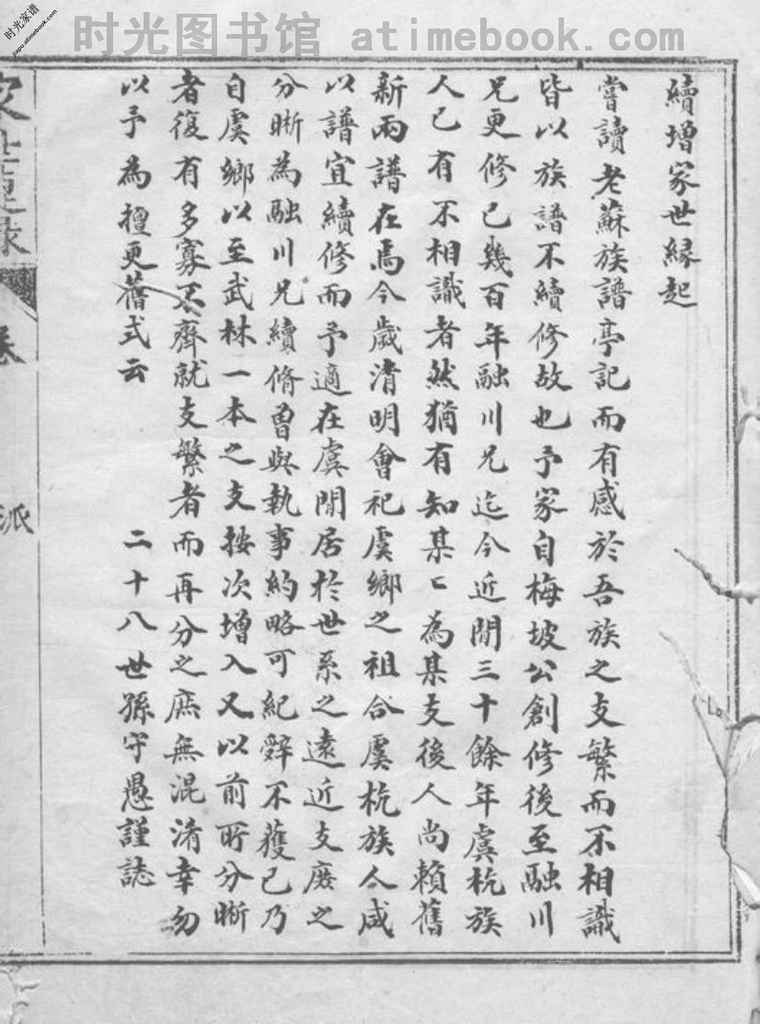 时光家谱
jiapu.atimebook.com
时光图书馆 atimebook.com
續增家世緣起
嘗讀老蘇族譜亭記而有感於吾族之支繁而不相識
皆以族譜不續修故也予家自梅坡公創修後至融川
兄更修已幾百年融川兄迄今近閒三十餘年虞杭族
人已有不相識者然猶有知某〻為某支後人尚賴舊
新兩譜在焉今歲清明會祀虞鄉之祖合虞杭族人咸
以譜宜續修而予適在虞閒居於世系之遠近支庶之
分晰為融川兄續脩曾與執事約略可紀辭不獲已乃
自虞鄉以至武林一本之支按次增入又以前所分晰
者復有多寡不齊就支繁者而再分之庶無混淆幸勿
以予為擅更舊式云 二十八世孫守愚謹誌
家世
卷
派